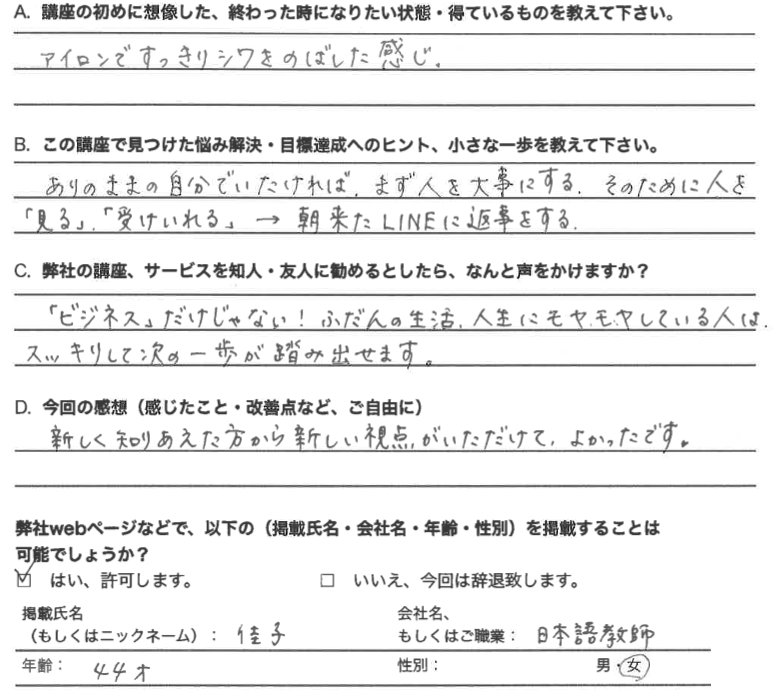 A. 講座の初めに想像した、終わった時になりたい状態・得ているものを教えて下さい。
アイロンですっきりシワをのばした感じ。
B. この講座で見つけた悩み解決・目標達成へのヒント、小さな一歩を教えて下さい。
ありのままの自分でいたければ、まず人を大事にする。そのために人を
「見る」、「受けいれる」 → 朝来たLINEに返事をする。
C. 弊社の講座、サービスを知人・友人に勧めるとしたら、なんと声をかけますか？
「ビジネス」だけじゃない！ふだんの生活、人生にモヤモヤしている人は、
スッキリして次の一歩が踏み出せます。
D. 今回の感想（感じたこと・改善点など、ご自由に）
新しく知りあえた方から新しい視点がいただけて、よかったです。
弊社webページなどで、以下の（掲載氏名・会社名・年齢・性別）を掲載することは
可能でしょうか？
☑ はい、許可します。 □ いいえ、今回は辞退致します。
掲載氏名 会社名、
（もしくはニックネーム）： 佳子 もしくはご職業： 日本語教師
年齢： 44才 性別： 男・女